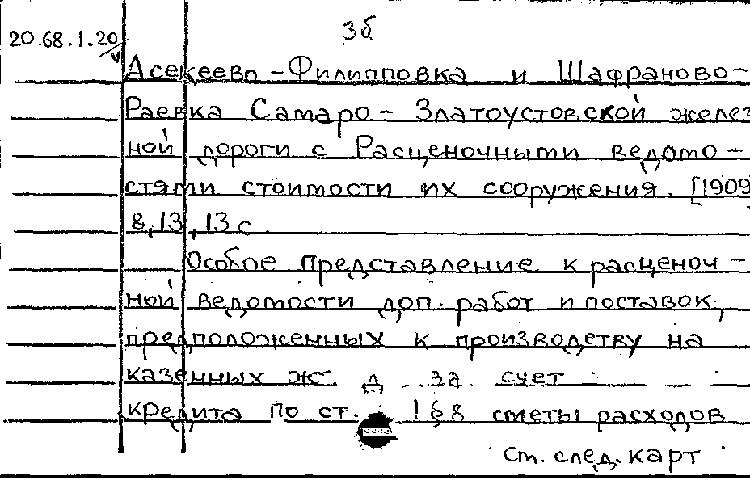 3б
20.68.1.20
Асекеево-Филипповка и Шафраново-
Раевка Самаро-Златоустовской желез
ной дороги с Расценочными ведомо-
стями стоимости их сооружения. [1909]
8,13,13 с.
Особое представление к расценоч-
ной ведомости доп. работ и поставок,
предположенных к производству на
казенных ж. д. за счет
кредита по ст. 168 сметы расходов
См. след. карт